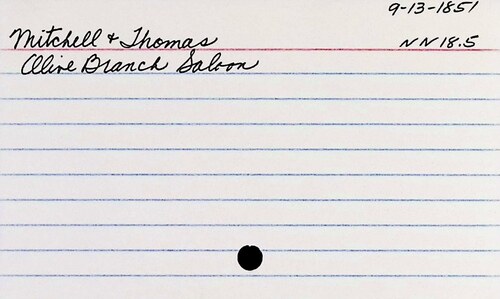 9-13-1851
Mitchell & Thomas NN18.5
Olive Branch Saloon